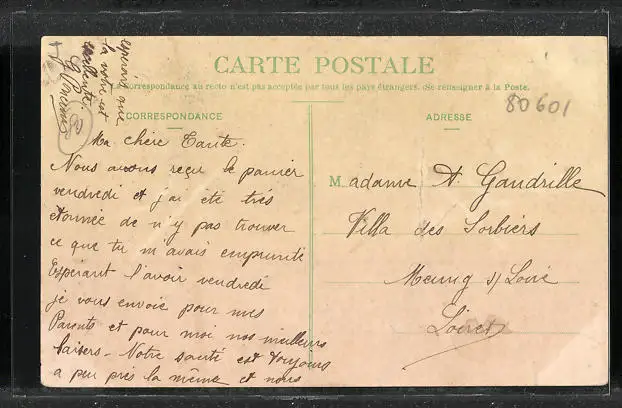 CARTE POSTALE
La correspondance au recto n'est pas acceptée par tous les pays étrangers. (Se renseigner à la Poste.
80601
CORRESPONDANCE
Ma chère Tante.
Nous avons reçu le panier
vendredi et j'ai été très
étonnée de n'y pas trouver
ce que tu m'avais emprunté
Espérant l'avoir vendredi
je vous envoie pour mes
Parents et pour moi nos meilleurs
baisers - Notre santé est toujours
a peu près la même et nous
espérons que
la votre est
excellente
ADRESSE
Madame A. Gaudrille
Villa des Sorbiers
Meung s/ Loire
Loiret